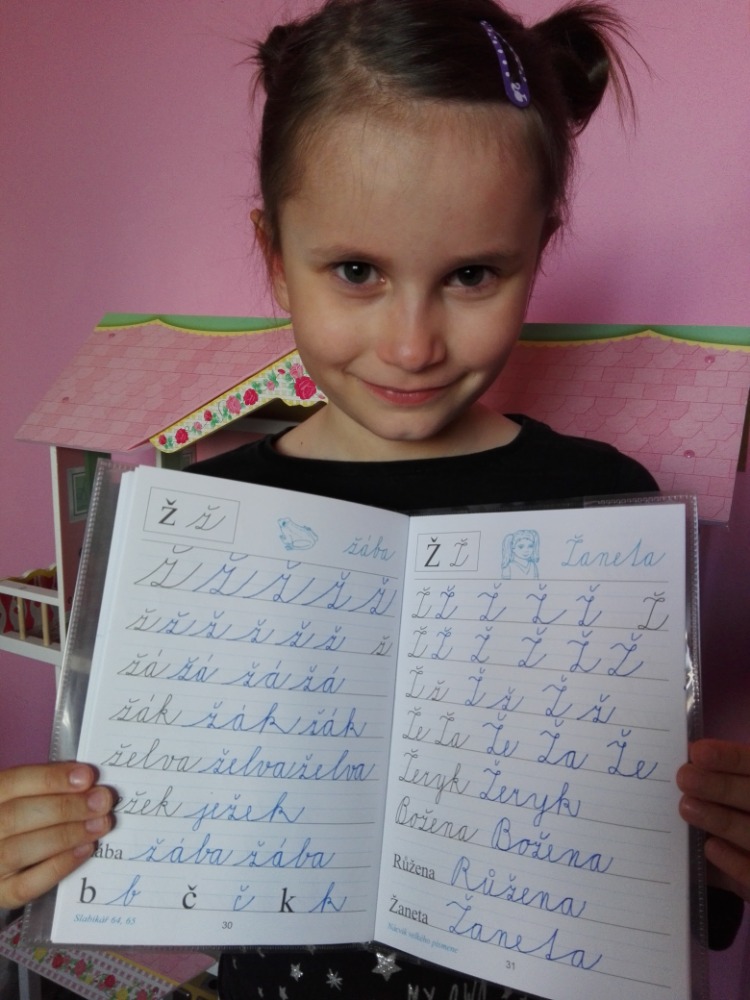 ž ž žába
ž ž ž ž ž
ž ž ž ž ž ž ž
žá žá žá žá
žák žák žák
želva želva želva
ežek ježek
ába žába žába
b b č č k k
Slabikář 64, 65
30
Ž Ž Žaneta
Ž Ž Ž Ž Ž Ž
Ž Ž Ž Ž Ž Ž
Ž ž Ž ž Ž ž
Že Ža Že Ža Že
Žeryk Žeryk
Božena Božena
Růžena Růžena
Žaneta Žaneta
Nácvik velkého písmene
31
MY OWN